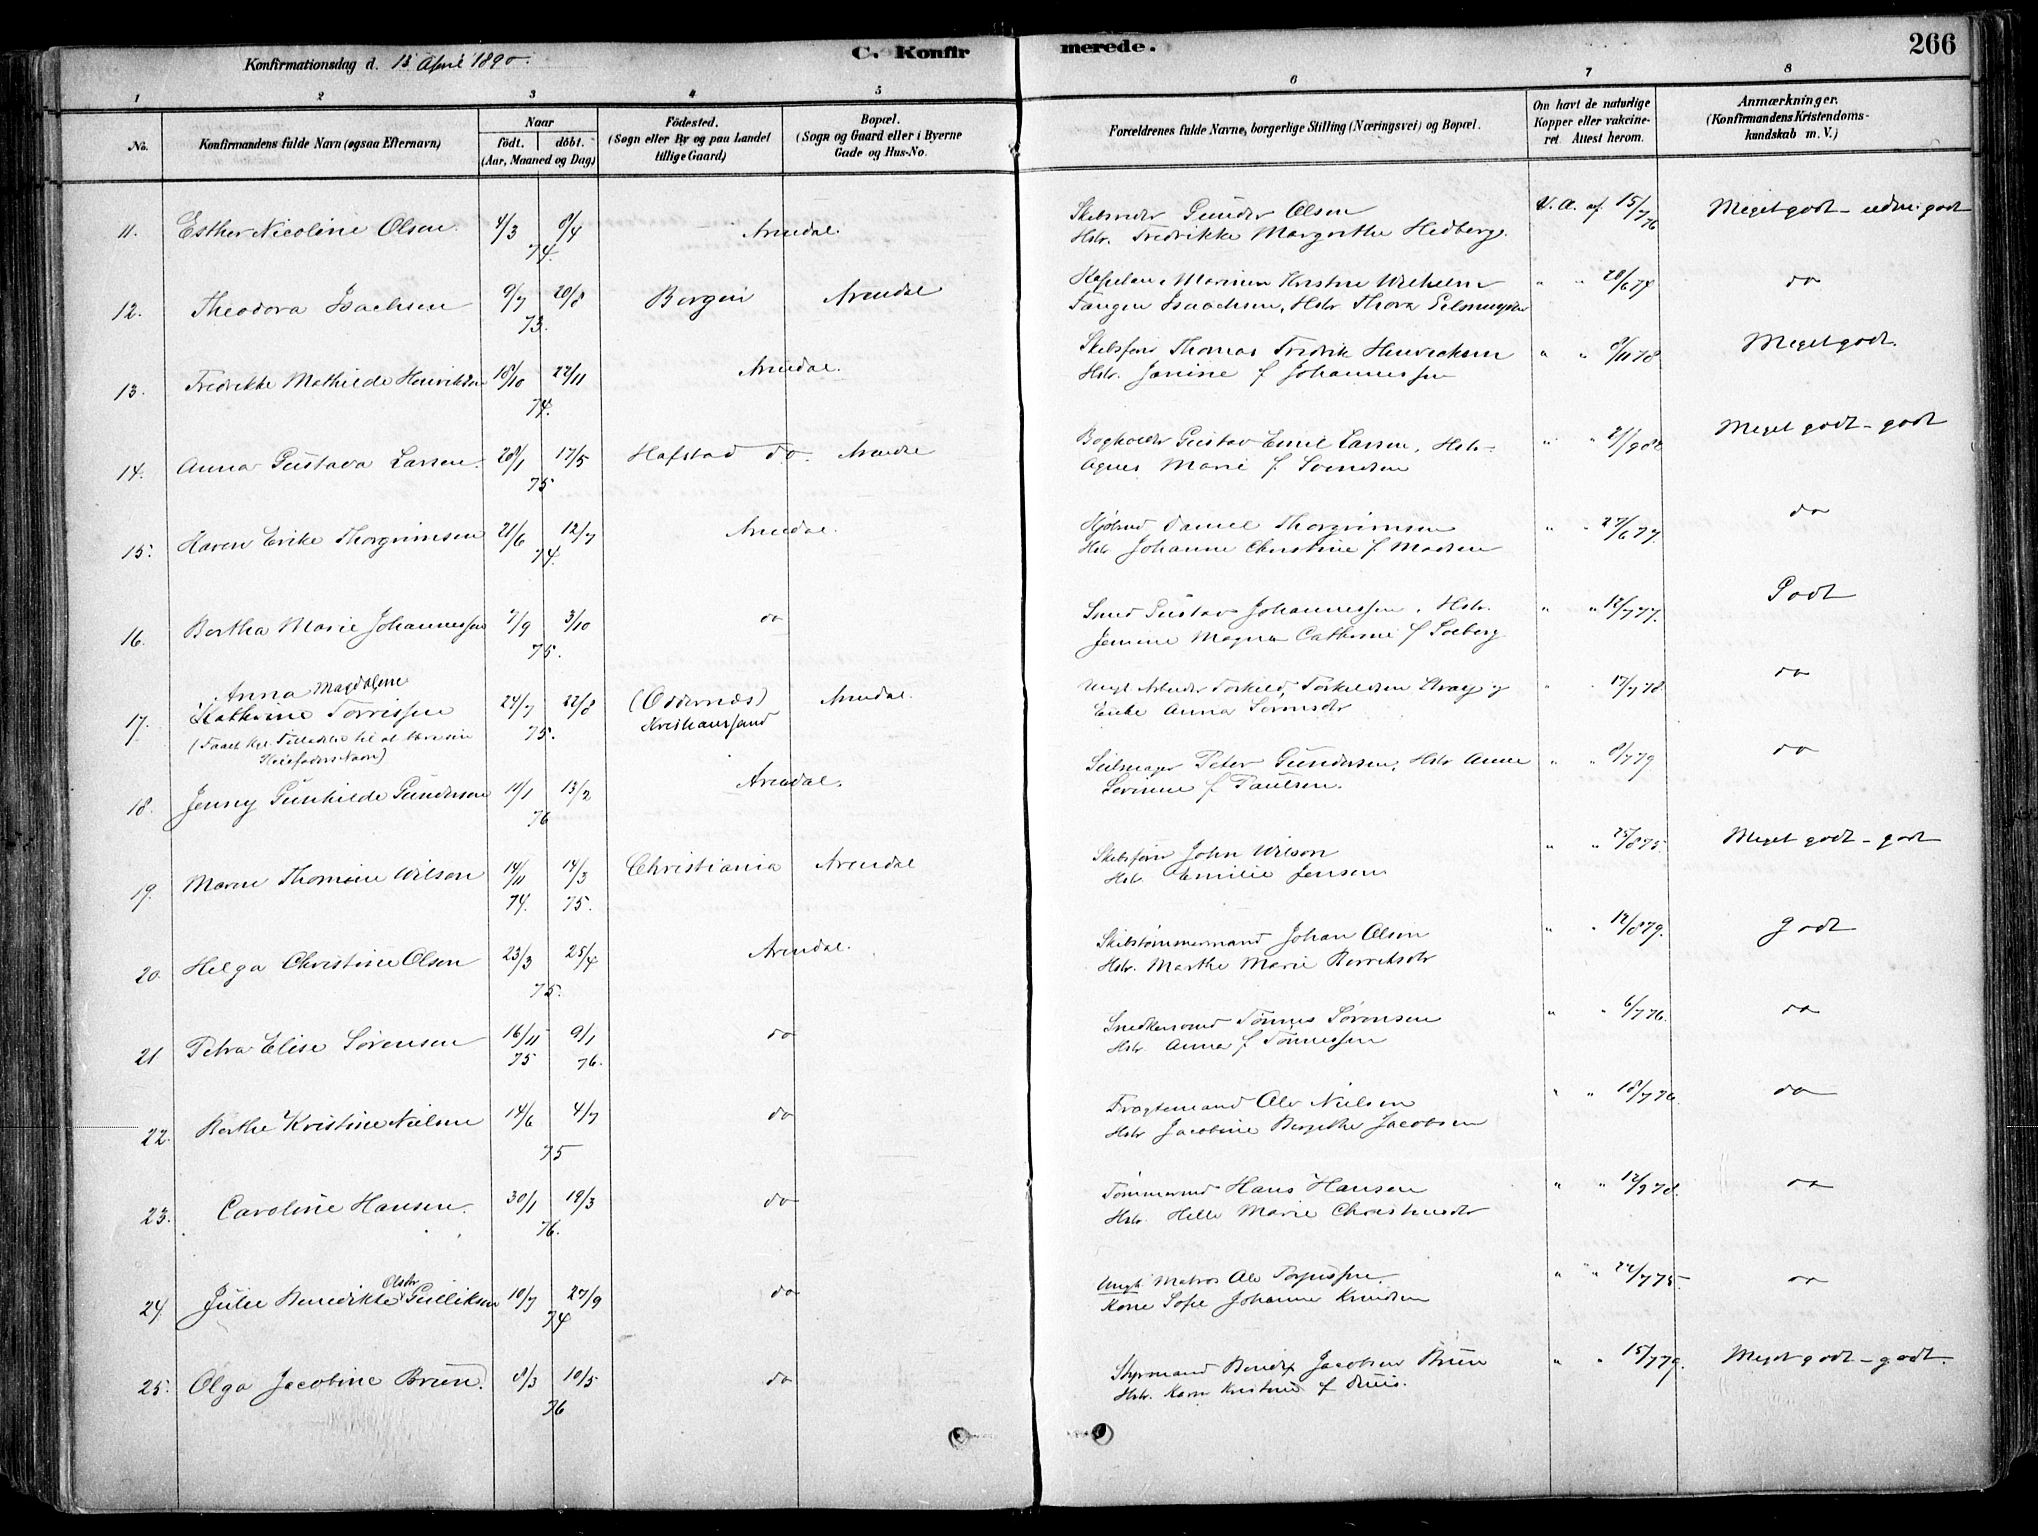 266
Konfirmationsdag d. 13 April 1890.
C. Konfir merede.
1 2 3 4 5 6 7 8
No.
Konfirmandens fulde Navn (ogsaa Efternavn)
Naar
födt. döbt.
(Aar, Maaned og Dag)
Födested.
(Sogn eller By og paa Landet
tillige Gaard)
Bopæl.
(Sogn og Gaard eller i Byerne
Gade og Hus-No.
Forældrenes fulde Navne, borgerlige Stilling (Næringsvei) og Bopæl.
Om havt de naturlige
Kopper eller vakcine-
ret. Attest herom.
Anmærkninger.
(Konfirmandens Kristendoms-
kundskab m. V.)
11. Esther Nicoline Olsen. 4/3 8/4 74. Arendal. Gunder Olsen V. A. af 15/7 76 Meget godt - udm. godt
Hstr. Fredrikke Margrethe Hedberg.
12. Theodora Isachsen 9/7 20/8 73. Bergen Arendal Marinus Kristen Wilhelm " " 20/6 74 do
Fangen Isaachsen, Hstr Thora
13. Fredrikke Mathilde Henriksen 18/10 22/11 74. Arendal. Skibsfører Thomas Fredrik Henrichsen " " 8/11 78 Meget godt.
Hstr. Janine f Johannessen
14. Anna Gustava Larsen. 28/1 17/5 75 Hafstad do. Arendal Bogholder Gustav Emil Larsen, Hstr. " " 21/9 82 Meget godt - godt
Agnes Marie f. Svendsen
15. Karen Erike Thorgrimsen 21/6 12/7 74. Arendal. Daniel Thorgrimsen " " 27/6 77. do
Hstr Johanne Christine f Madsen
16. Bertha Marie Johannessen 7/9 3/10 75. do Smed Gustav Johannessen, Hstr. " " 12/7 77. Godt
Magna Cathrine f Soeberg
17. Anna Magdalene
Kathrine Torrissen 24/7 22/8 75. (Oddernæs) Arendal Ungk Arbeider Torkild Torkildsen og " " 17/7 78. do
Kristianssand Enke Anna
18. Jenny Gunhilde Gundersen 11/1 13/2 76 Arendal. Seilmager Peter Gundersen, Hstr Anne " " 8/7 79 do
Severine f. Paulsen.
19. Maren Thomine Wilson 14/11 74. 14/3 75. Christiania Arendal Skibsfører John Wilson " " 25/8 75. Meget godt - godt
Hstr. Emilie Jensen
20. Helga Christine Olsen 23/3 25/4 75. Arendal. Skibstømmermand Johan Olsen " " 12/8 79. Godt
Hstr. Marthe Marie
21 Petra Elise Sørensen 16/11 75 9/1 76. do Snedkersvend Tønnes Sørensen " " 6/7 76. do
Hstr. Anna f Tønnessen
22. Berthe Kristine Nielsen 14/6 4/7 75 do Fragtemand Ole Nielsen " " 18/7 76. do
Hstr Jacobine Jacobsen
23. Caroline Hansen. 30/1 19/3 76. do Tømmermd Hans Hansen " " 12/9 78. do
Hstr. Helle Marie Christensdtr
24. Julie Benedikte Olsdtr Gulliksen 10/7 27/9 74 do Ungk. Matros Ole " " 22/7 75. do
Sofie Johanne Knudsen
25. Olga Jacobine Brun. 8/3 10/5 76 do Styrmand Bendix Jacobsen Brun " " 15/7 79. Meget godt - godt.
Hstr. Karen Kristine f